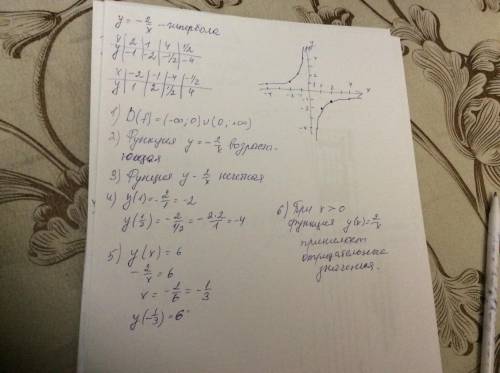 y = -2/x - гипербола
x | 2 | 1 | 4 | 1/2
y | -1 | -2 | -1/2 | -4
x | -2 | -1 | -4 | -1/2
y | 1 | 2 | 1/2 | 4
1) D(f) = (-∞; 0) ∪ (0; +∞)
2) Функция y = -2/x возраст-
ающая
3) Функция y - 2/x нечетная
4) y(1) = -2/1 = -2
y(1/2) = -2/1/2 = -2·2/1 = -4
5) y(x) = 6
-2/x = 6
x = -2/6 = -1/3
y(-1/3) = 6
6) При x > 0
функция y(x) = 2/x
принимает
отрицательные
значения.